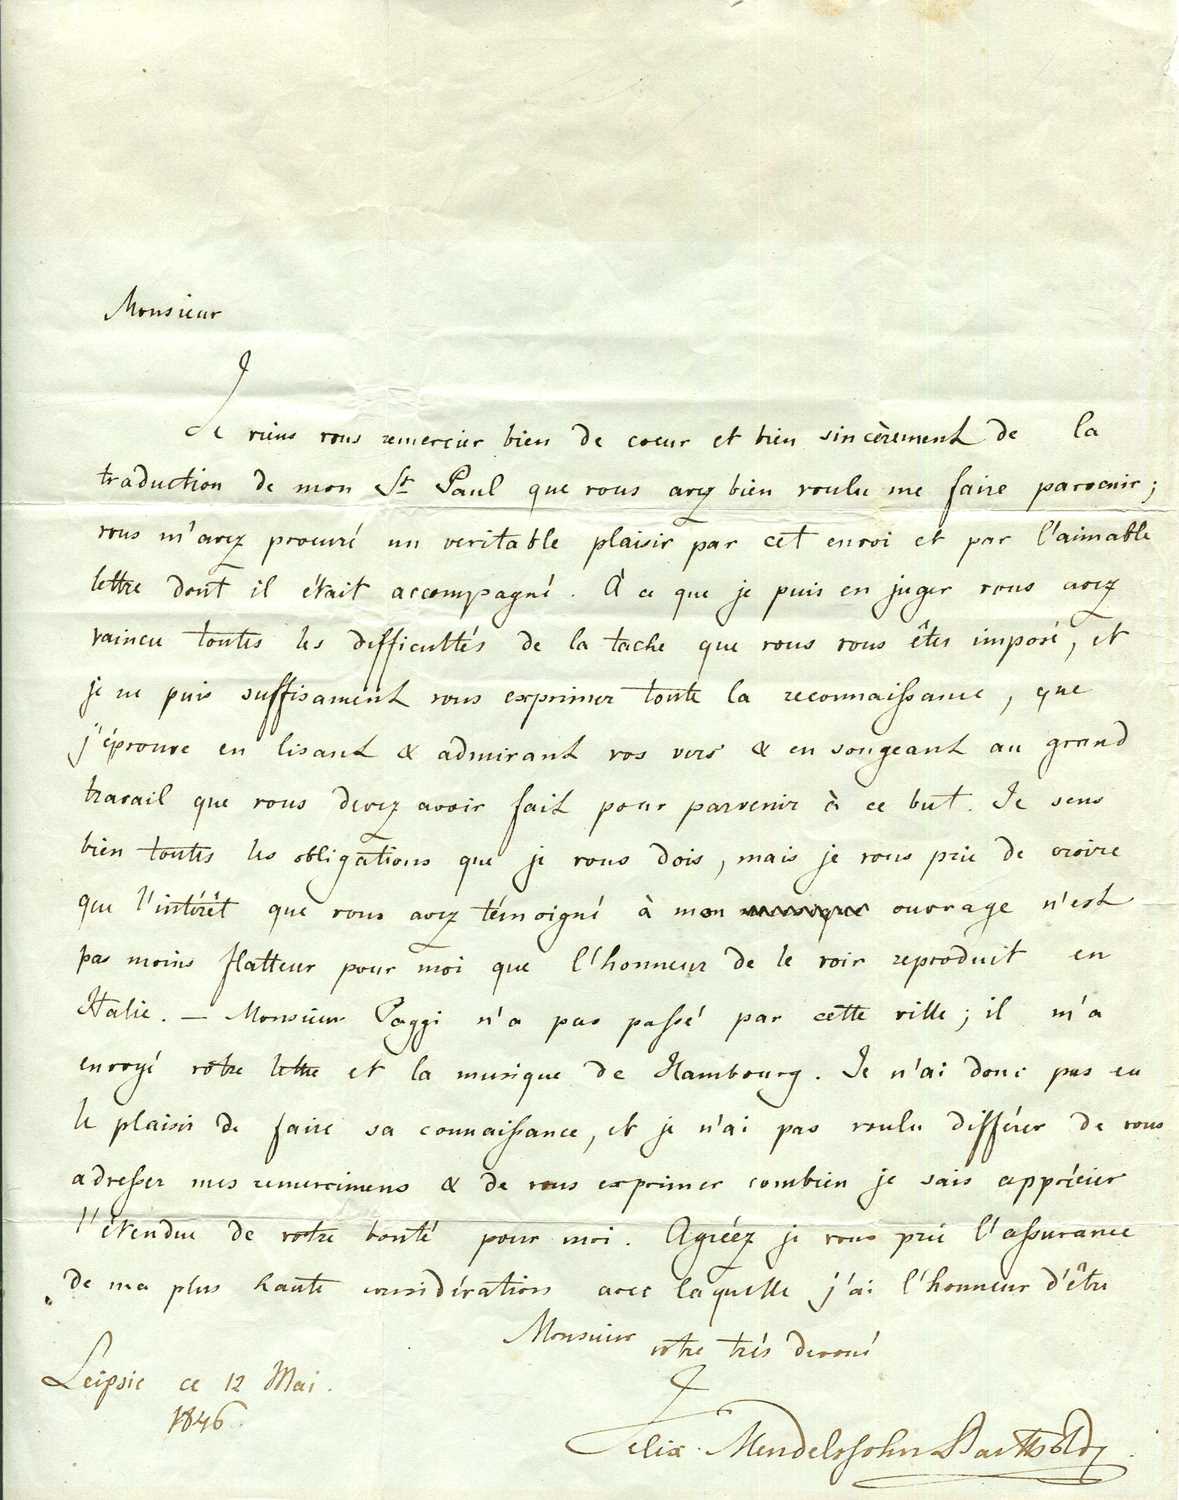 Monsieur
Je viens vous remercier bien de coeur et bien sincèrement de la
traduction de mon St Paul que vous avez bien voulu me faire parvenir;
vous m'avez procuré un veritable plaisir par cet envoi et par l'aimable
lettre dont il était accompagné. À ce que je puis en juger vous avez
vaincu toutes les difficultés de la tache que vous vous êtes imposé, et
je ne puis suffisament vous exprimer toute la reconnaissance, que
j'éprouve en lisant & admirant vos vers & en songeant au grand
travail que vous devez avoir fait pour parvenir à ce but. Je sens
bien toutes les obligations que je vous dois, mais je vous prie de croire
que l'intérêt que vous avez témoigné à mon ouvrage n'est
pas moins flatteur pour moi que l'honneur de le voir reproduit en
Italie. — Monsieur Paggi n'a pas passé par cette ville; il m'a
envoyé votre lettre et la musique de Hambourg. Je n'ai donc pas eu
le plaisir de faire sa connaissance, et je n'ai pas voulu différer de vous
adresser mes remercimens & de vous exprimer combien je sais apprécier
l'étendue de votre bonté pour moi. Agréez je vous prie l'assurance
de ma plus haute considération avec laquelle j'ai l'honneur d'être
Monsieur
votre très devoué
Leipsic ce 12 Mai.
1846.
Felix Mendelssohn Bartholdy